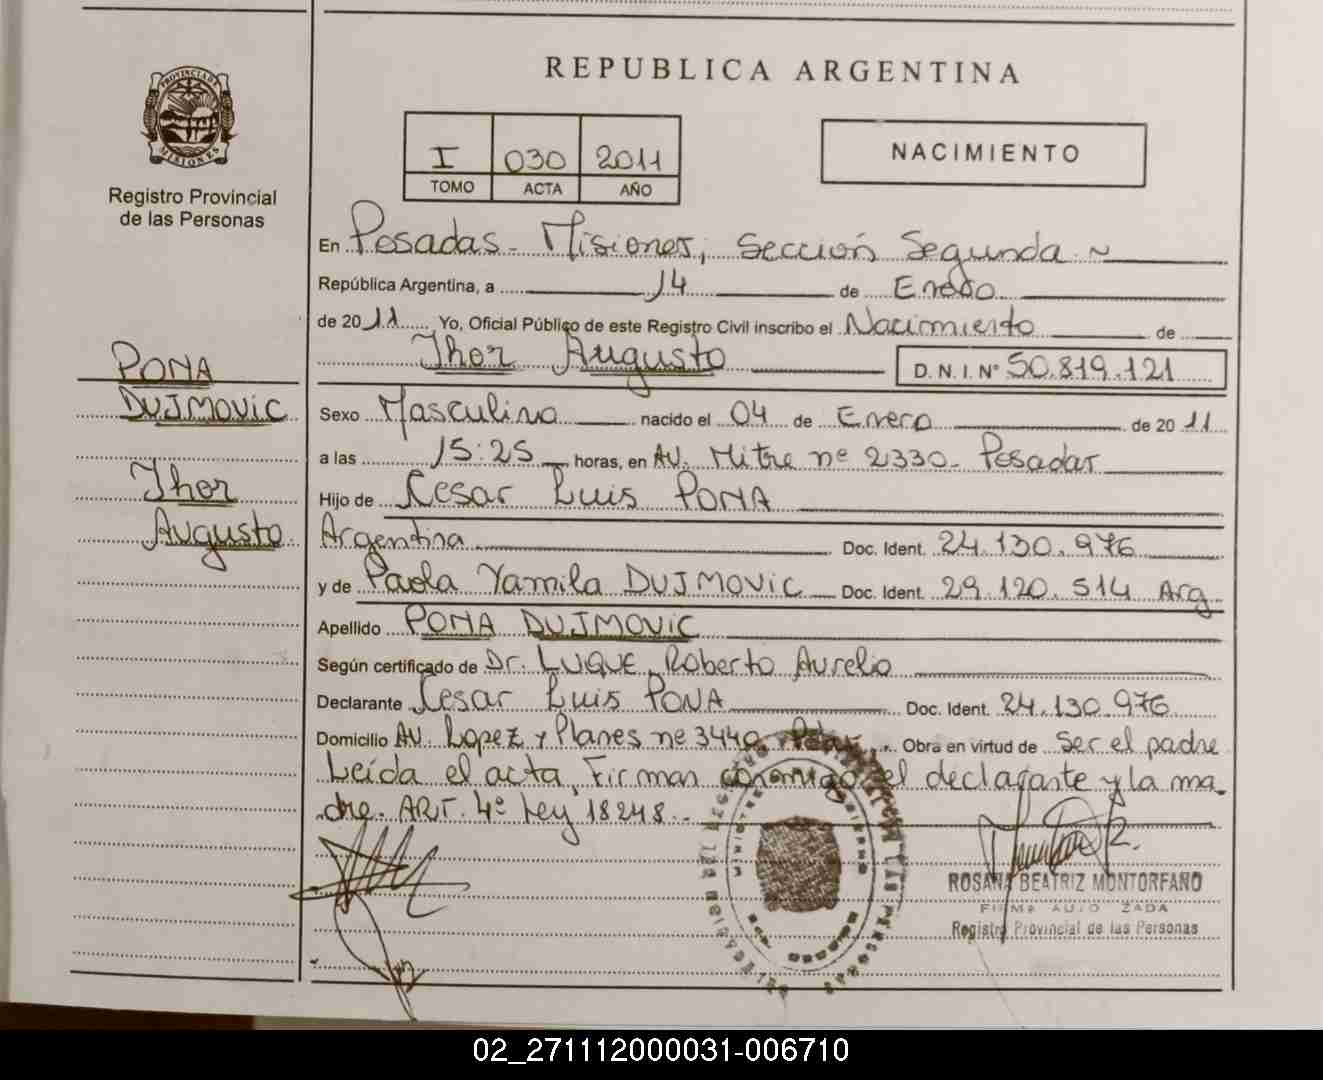 REPUBLICA ARGENTINA
PROVINCIA DE MISIONES
Registro Provincial
de las Personas
I 030 2011
TOMO ACTA AÑO
NACIMIENTO
En Posadas - Misiones, Sección Segunda ~
República Argentina, a 14 de Enero
de 2011 Yo, Oficial Público de este Registro Civil inscribo el Nacimiento de
Thor Augusto D.N.I. Nº 50.819.121
PONA
DUJMOVIC
Thor
Augusto
Sexo Masculino nacido el 04 de Enero de 2011
a las 15:25 horas, en AV. Mitre nº 2330- Posadas
Hijo de Cesar Luis PONA
Argentina Doc. Ident. 24.130.976
y de Paola Yamila DUJMOVIC Doc. Ident. 29.120.514 Arg
Apellido PONA DUJMOVIC
Según certificado de Dr. LUQUE, Roberto Aurelio
Declarante Cesar Luis PONA Doc. Ident. 24.130.976
Domicilio AV. Lopez y Planes nº 3440, Obra en virtud de ser el padre
Leída el acta, Firman conmigo el declarante y la ma-
dre. ART. 4º Ley 18248.-
ROSANA BEATRIZ MONTORFANO
FIRMA AUTORIZADA
Registro Provincial de las Personas
02_271112000031-006710